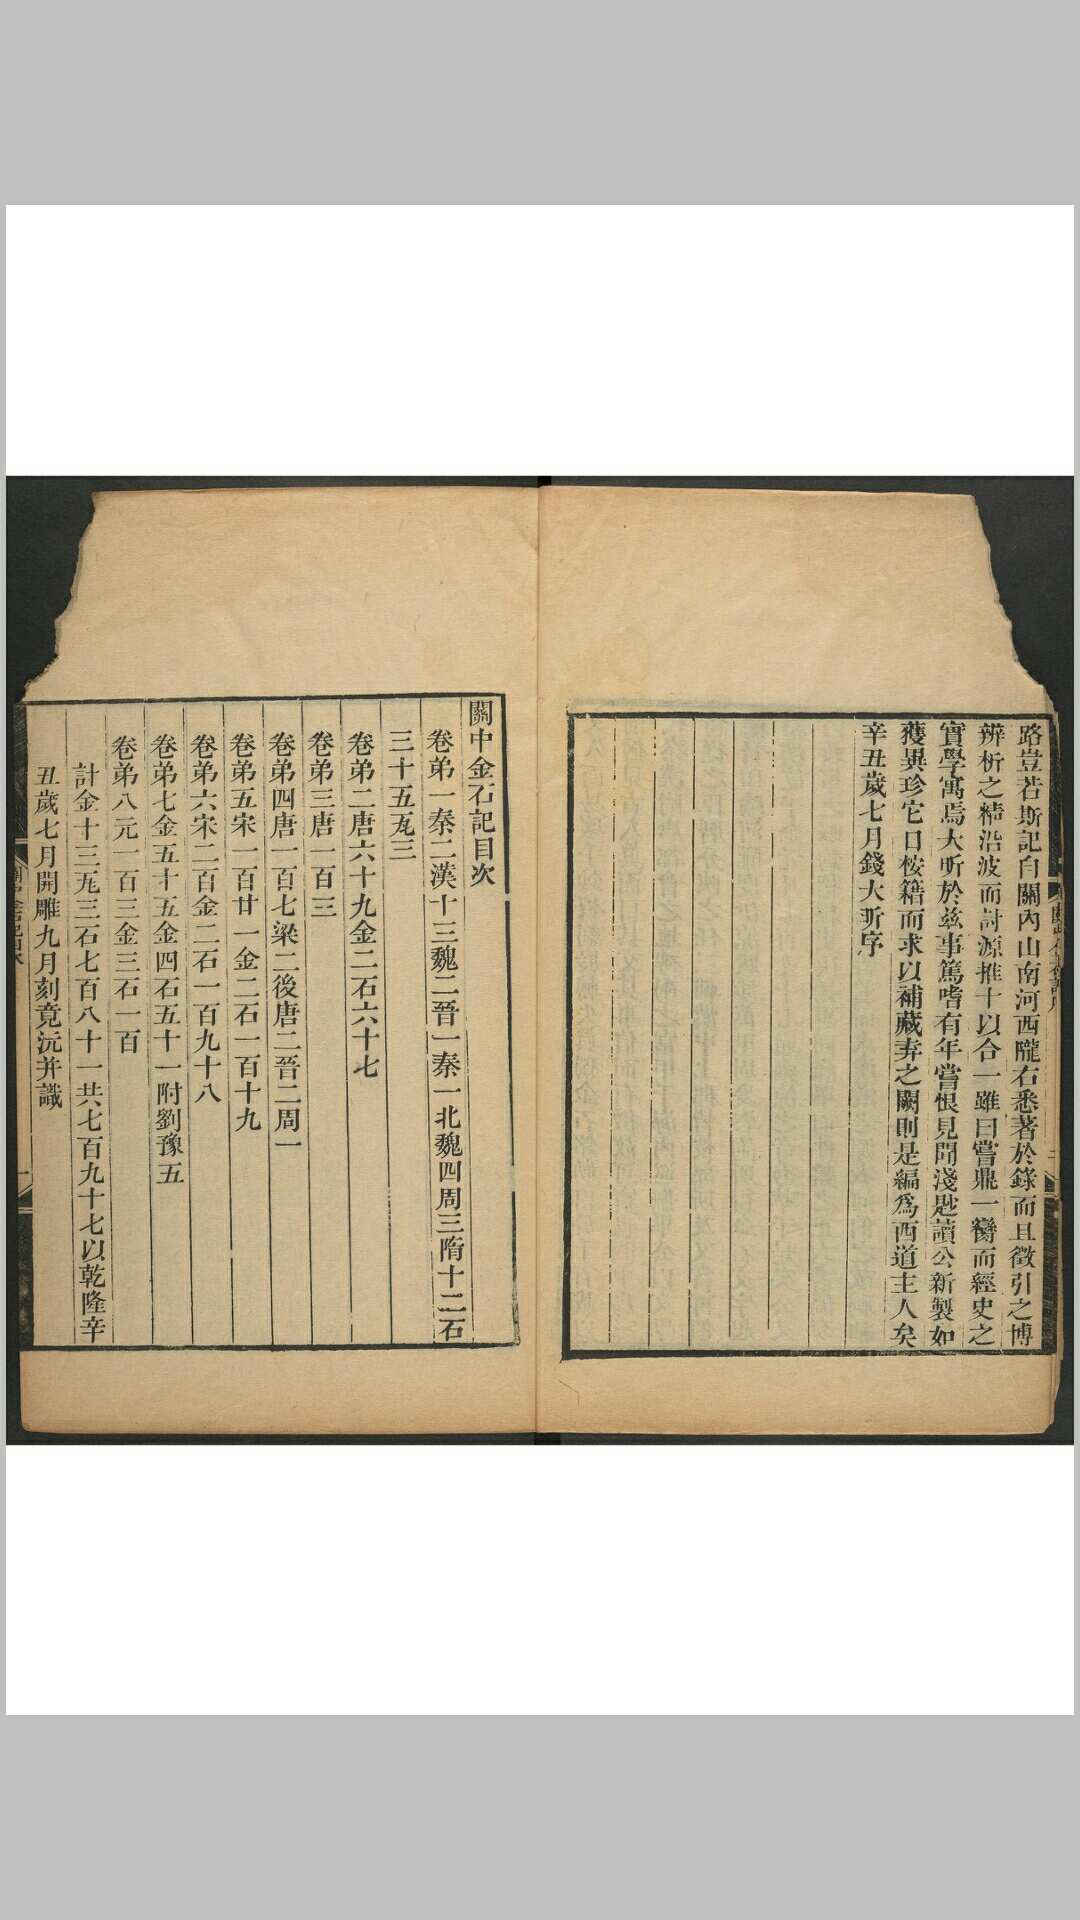 路豈若斯記自關內山南河西隴右悉著於錄而且徵引之博
辨析之精沿波而討源推十以合一雖曰嘗鼎一臠而經史之
實學寓焉大昕於兹事篤嗜有年嘗恨見聞淺尠讀公新製如
獲異珍它日桉籍而求以補藏弆之闕則是編爲西道主人矣
辛丑歲七月錢大昕序
關中金石記目次
卷弟一秦二漢十三魏二晉一秦一北魏四周三隋十二石
三十五瓦三
卷弟二唐六十九金二石六十七
卷弟三唐一百三
卷弟四唐一百七梁二後唐二晉二周一
卷弟五宋一百廿一金二石一百十九
卷弟六宋二百金二石一百九十八
卷弟七金五十五金四石五十一附劉豫五
卷弟八元一百三金三石一百
計金十三瓦三石七百八十一共七百九十七以乾隆辛
丑歲七月開雕九月刻竟沅并識